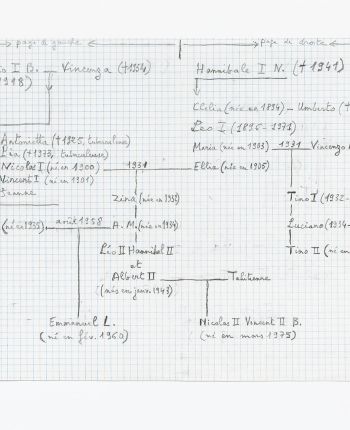 page de gauche
page de droite
I B. — Vincenza (+1954)
Hannibale I N. (+1941)
1918)
Clelia (née en 1894) — Umberto (+
Leo I (1896-1971)
Antonietta (+1925, tuberculeuse)
Maria (née en 1903) 1931 Vincenzo
Lia (+1973, tuberculeuse)
Nicolas I (né en 1900) 1931 Ellia (née en 1905)
Vincent I (né en 1901)
Jeanne
Zina (née en 1932)
Tino I (1932-
(né en 1935) août 1958 A. M. (née en 1934)
Luciano (1934-
Léo II Hannibal II
Tino II (né en
et
Albert II
Tahitienne
(nés en janv. 1943)
Emmanuel L.
Nicolas II Vincent II B.
(né en fév. 1960)
(né en mars 1975)